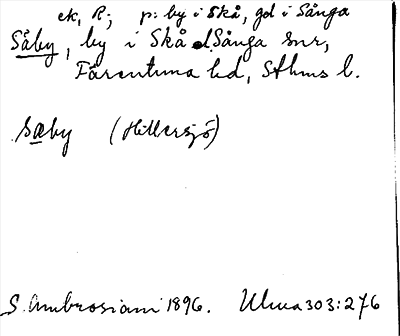 ek, R; p: by i Skå, gd i Sånga
Såby, by i Skå o. Sånga snr,
Färentuna hd, Sthms l.
Sæby (Hillersjö)
S. Ambrosiani 1896. Ulma 303:276